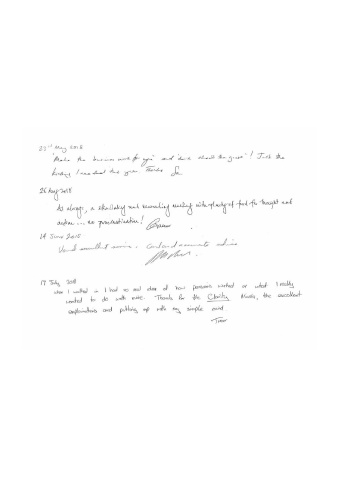 23rd May 2018
"Make the business work for you" and "don't the " ! Just the
I needed this year. Thanks
25 May 2018
As always, a stimulating and rewarding meeting with plenty of food for thought and
action ... no procrastination!
14 June 2018
Usual excellent service. Good and accurate advice
17 July 2018
When I walked in I had no real idea of how pensions worked or what I really
wanted to do with mine. Thanks for the Clarity, the excellent
explanations and putting up with my simple mind.